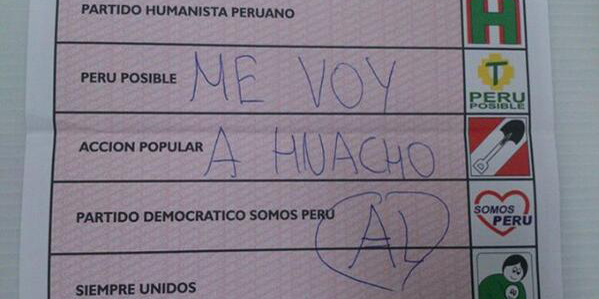 PARTIDO HUMANISTA PERUANO H
PERU POSIBLE ME VOY T PERU POSIBLE
ACCION POPULAR A HUACHO
PARTIDO DEMOCRATICO SOMOS PERÚ AL SOMOS PERU
SIEMPRE UNIDOS